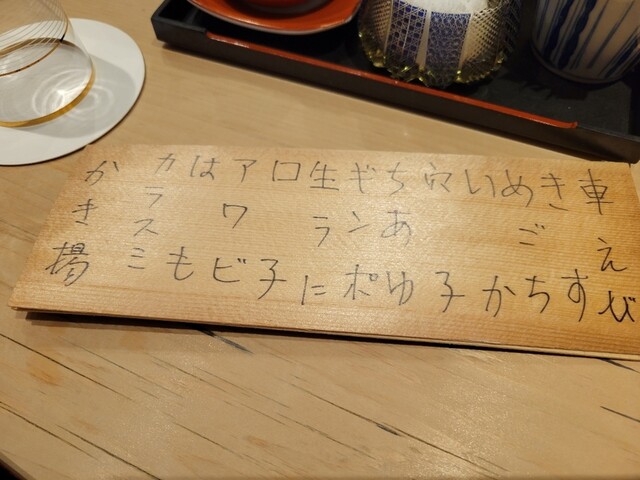 車えび
きす
めごち
いか
穴子
ちあゆ
ギンポ
生うに
口子
アワビ
はも
カラスミ
かき揚